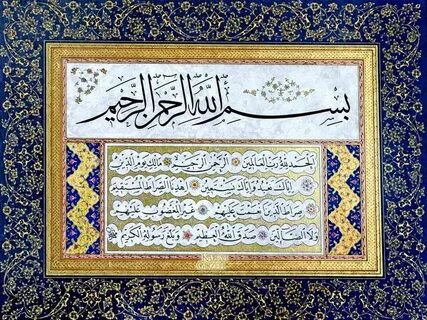 بسم الله الرحمن الرحيم
الحمد لله رب العالمين الرحمن الرحيم مالك يوم الدين
اياك نعبد واياك نستعين اهدنا الصراط المستقيم
صراط الذين انعمت عليهم غير المغضوب عليهم
ولا الضالين صدق الله العظيم وبلغ رسوله الكريم